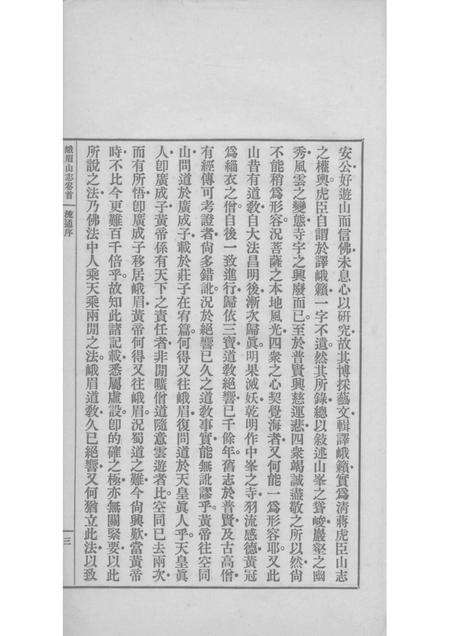 安公好遊山而信佛。未息心以研究。故其博採藝文。輯譯峨籟。實爲清蔣虎臣山志
之權輿。虎臣自謂於譯峨籟。一字不遺。然其所錄。總以敍述山峯之聳峻。巖壑之幽
秀。風雲之變態。寺宇之興廢而已。至於普賢興慈運悲。四衆竭誠盡敬之所以然。尚
不能稍爲形容。況菩薩之本地風光。四衆之心契覺海者。又何能一爲形容耶。又此
山昔有道教。自大法昌明後。漸次歸眞。明果滅妖。乾明作中峯之寺。羽流感德。黃冠
爲緇衣之僧。自後一致進行。歸依三寶。道教絕響。已千餘年。舊志於普賢及古高僧。
有經傳可考證者。尚多錯訛。況於絕響已久之道教事實。能無訛謬乎。黃帝往空同
山。問道於廣成子。載於莊子在宥篇。何得又往峨眉。復問道於天皇眞人乎。天皇眞
人。卽廣成子。黃帝係有天下之責任者。非閒曠僧道隨意雲遊者比。空同已去兩次。
而有所悟。卽廣成子移居峨眉。黃帝何得又往峨眉。況蜀道之難。今尚興歎。當黃帝
時。不比今更難百千倍乎。故知此諸記載。悉屬虛設。卽的確之極。亦無關緊要。以此
所說之法。乃佛法中人乘天乘兩閒之法。峨眉道教。久已絕響。又何猶立此法以致
峨眉山志卷首　捷通序　三